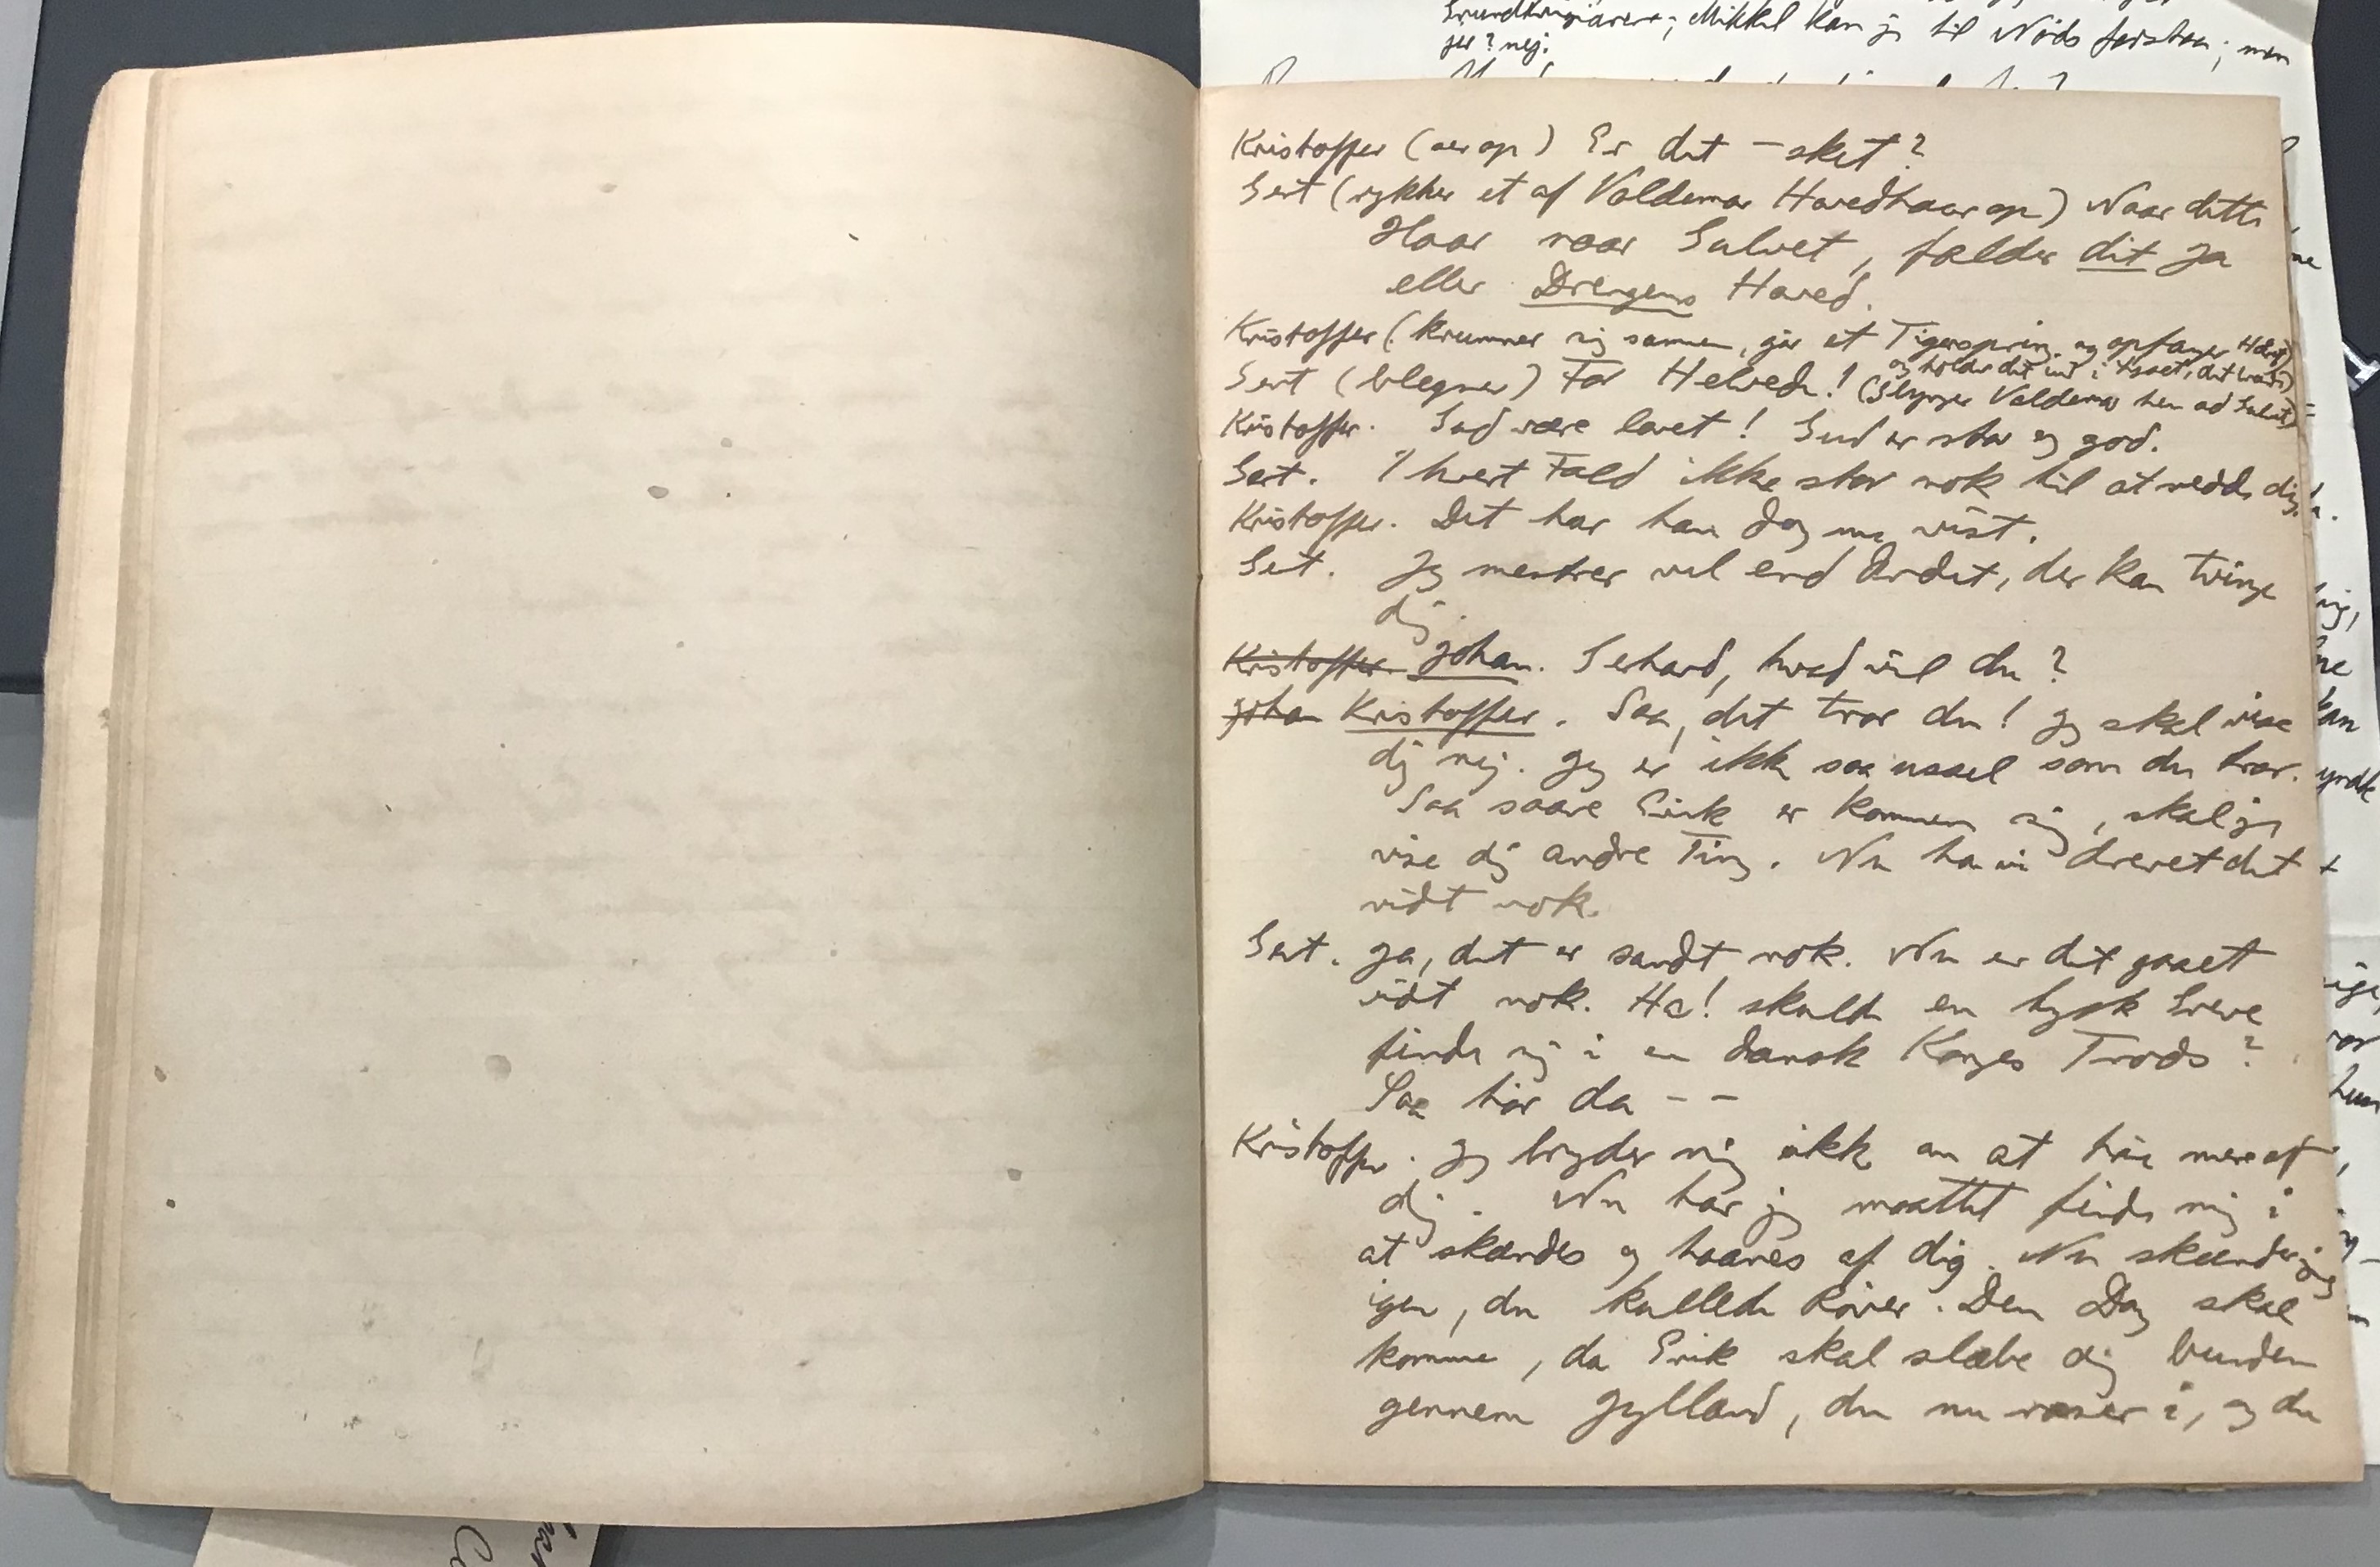 Grundtvigianere; Mikkel kan j til Nöds forstaa; men
jer? nej.
Kristoffer (ser op) Er det – sket?
Gert (rykker et af Valdemar Hovedhaar op) Naar dette
Haar naar Gulvet, falder dit Ja
eller Drengens Hoved.
Kristoffer (krummer sig sammen, gör et Tigerspring og opfanger Haaret)
og holder det ind i Lyset, det
Gert (blegner) For Helvede! (Slynger Valdemar hen ad Gulvet)
Kristoffer. Gud være lovet! Gud er stor og god.
Gert. I hvert Fald ikke stor nok til at redde dig.
Kristoffer. Det har han dog nu vist.
Gert. Jeg mestrer vel end Ordet, der kan tvinge
dig.
Kristoffer. Johan. Gerhard, hvad vil du?
Johan Kristoffer. Saa, det tror du! Jeg skal vise
dig nej. Jeg er ikke saa ussel som du tror.
Saa saare Erik er kommen sig, skal jeg
vise dig andre Ting. Nu ha vi drevet det
vidt nok.
Gert. Ja, det er sandt nok. Nu er det gaaet
vidt nok. Ha! skulde en tysk Greve
finde sig i en dansk Konges Trods?
Saa hör da – –
Kristoffer. Jeg bryder mig ikke om at höre mere af
dig. Nu har jeg maattet finde mig i
at skændes og haanes af dig. Nu skænder jeg
igen, du kullede Röver. Den Dag skal
komme, da Erik skal slæbe dig bunden
gennem Jylland, du nu raser i, og du